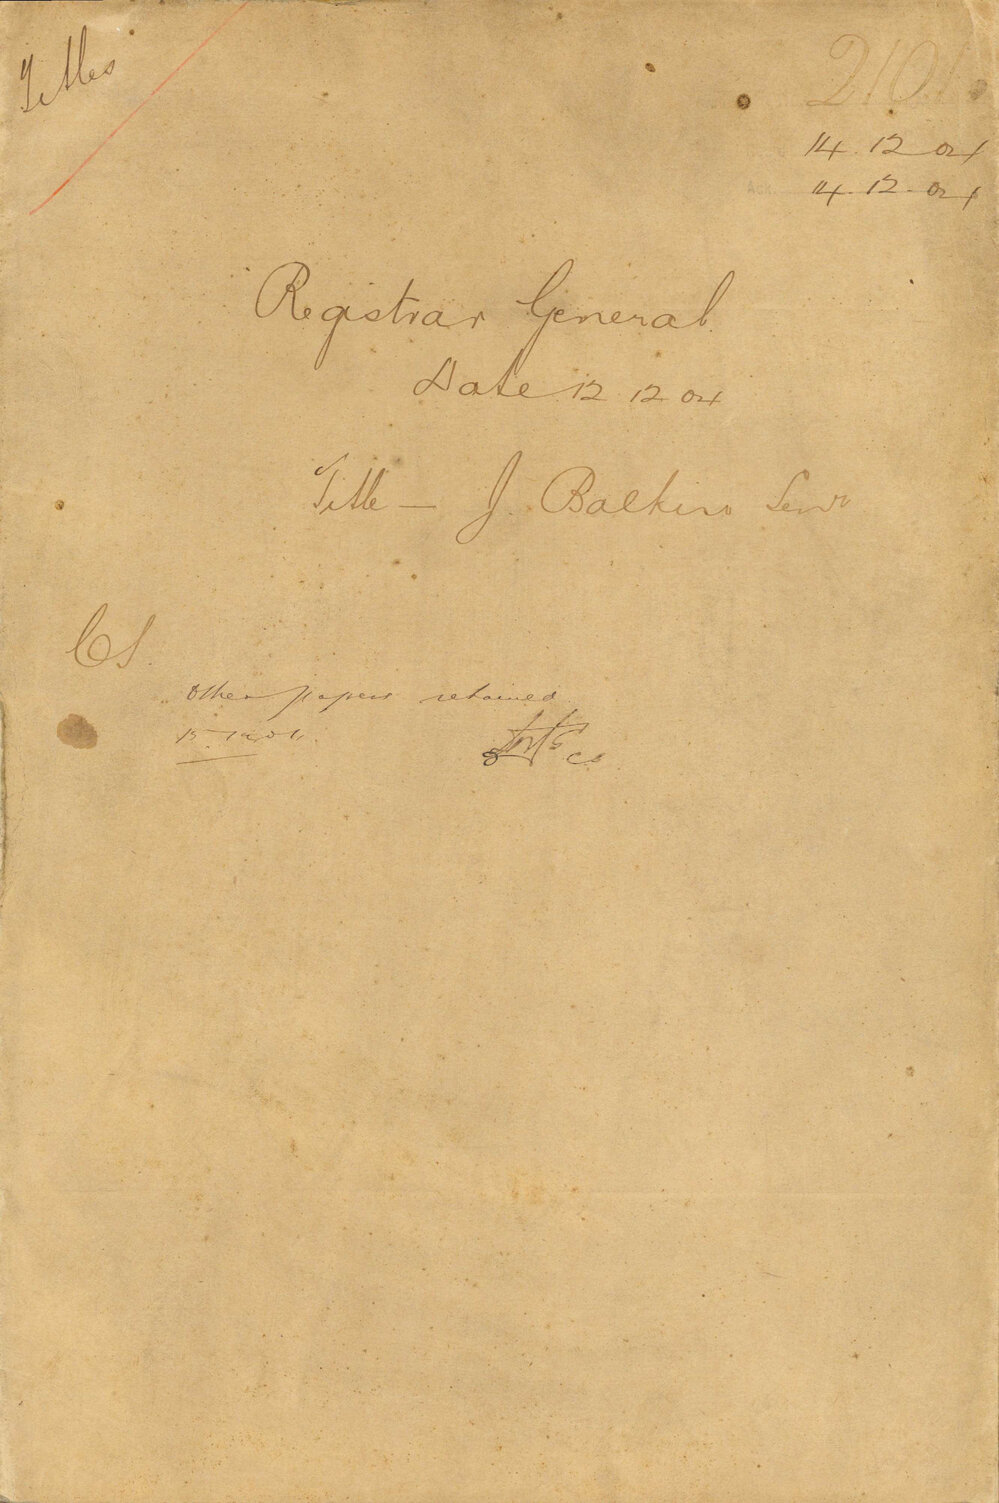 Titles
2101
14.12.04
Ack 14.12.04
Registrar General
Date 12 12 04
Title — J. Balkin Senr
CS.
Other papers retained
15.12.04.
CS